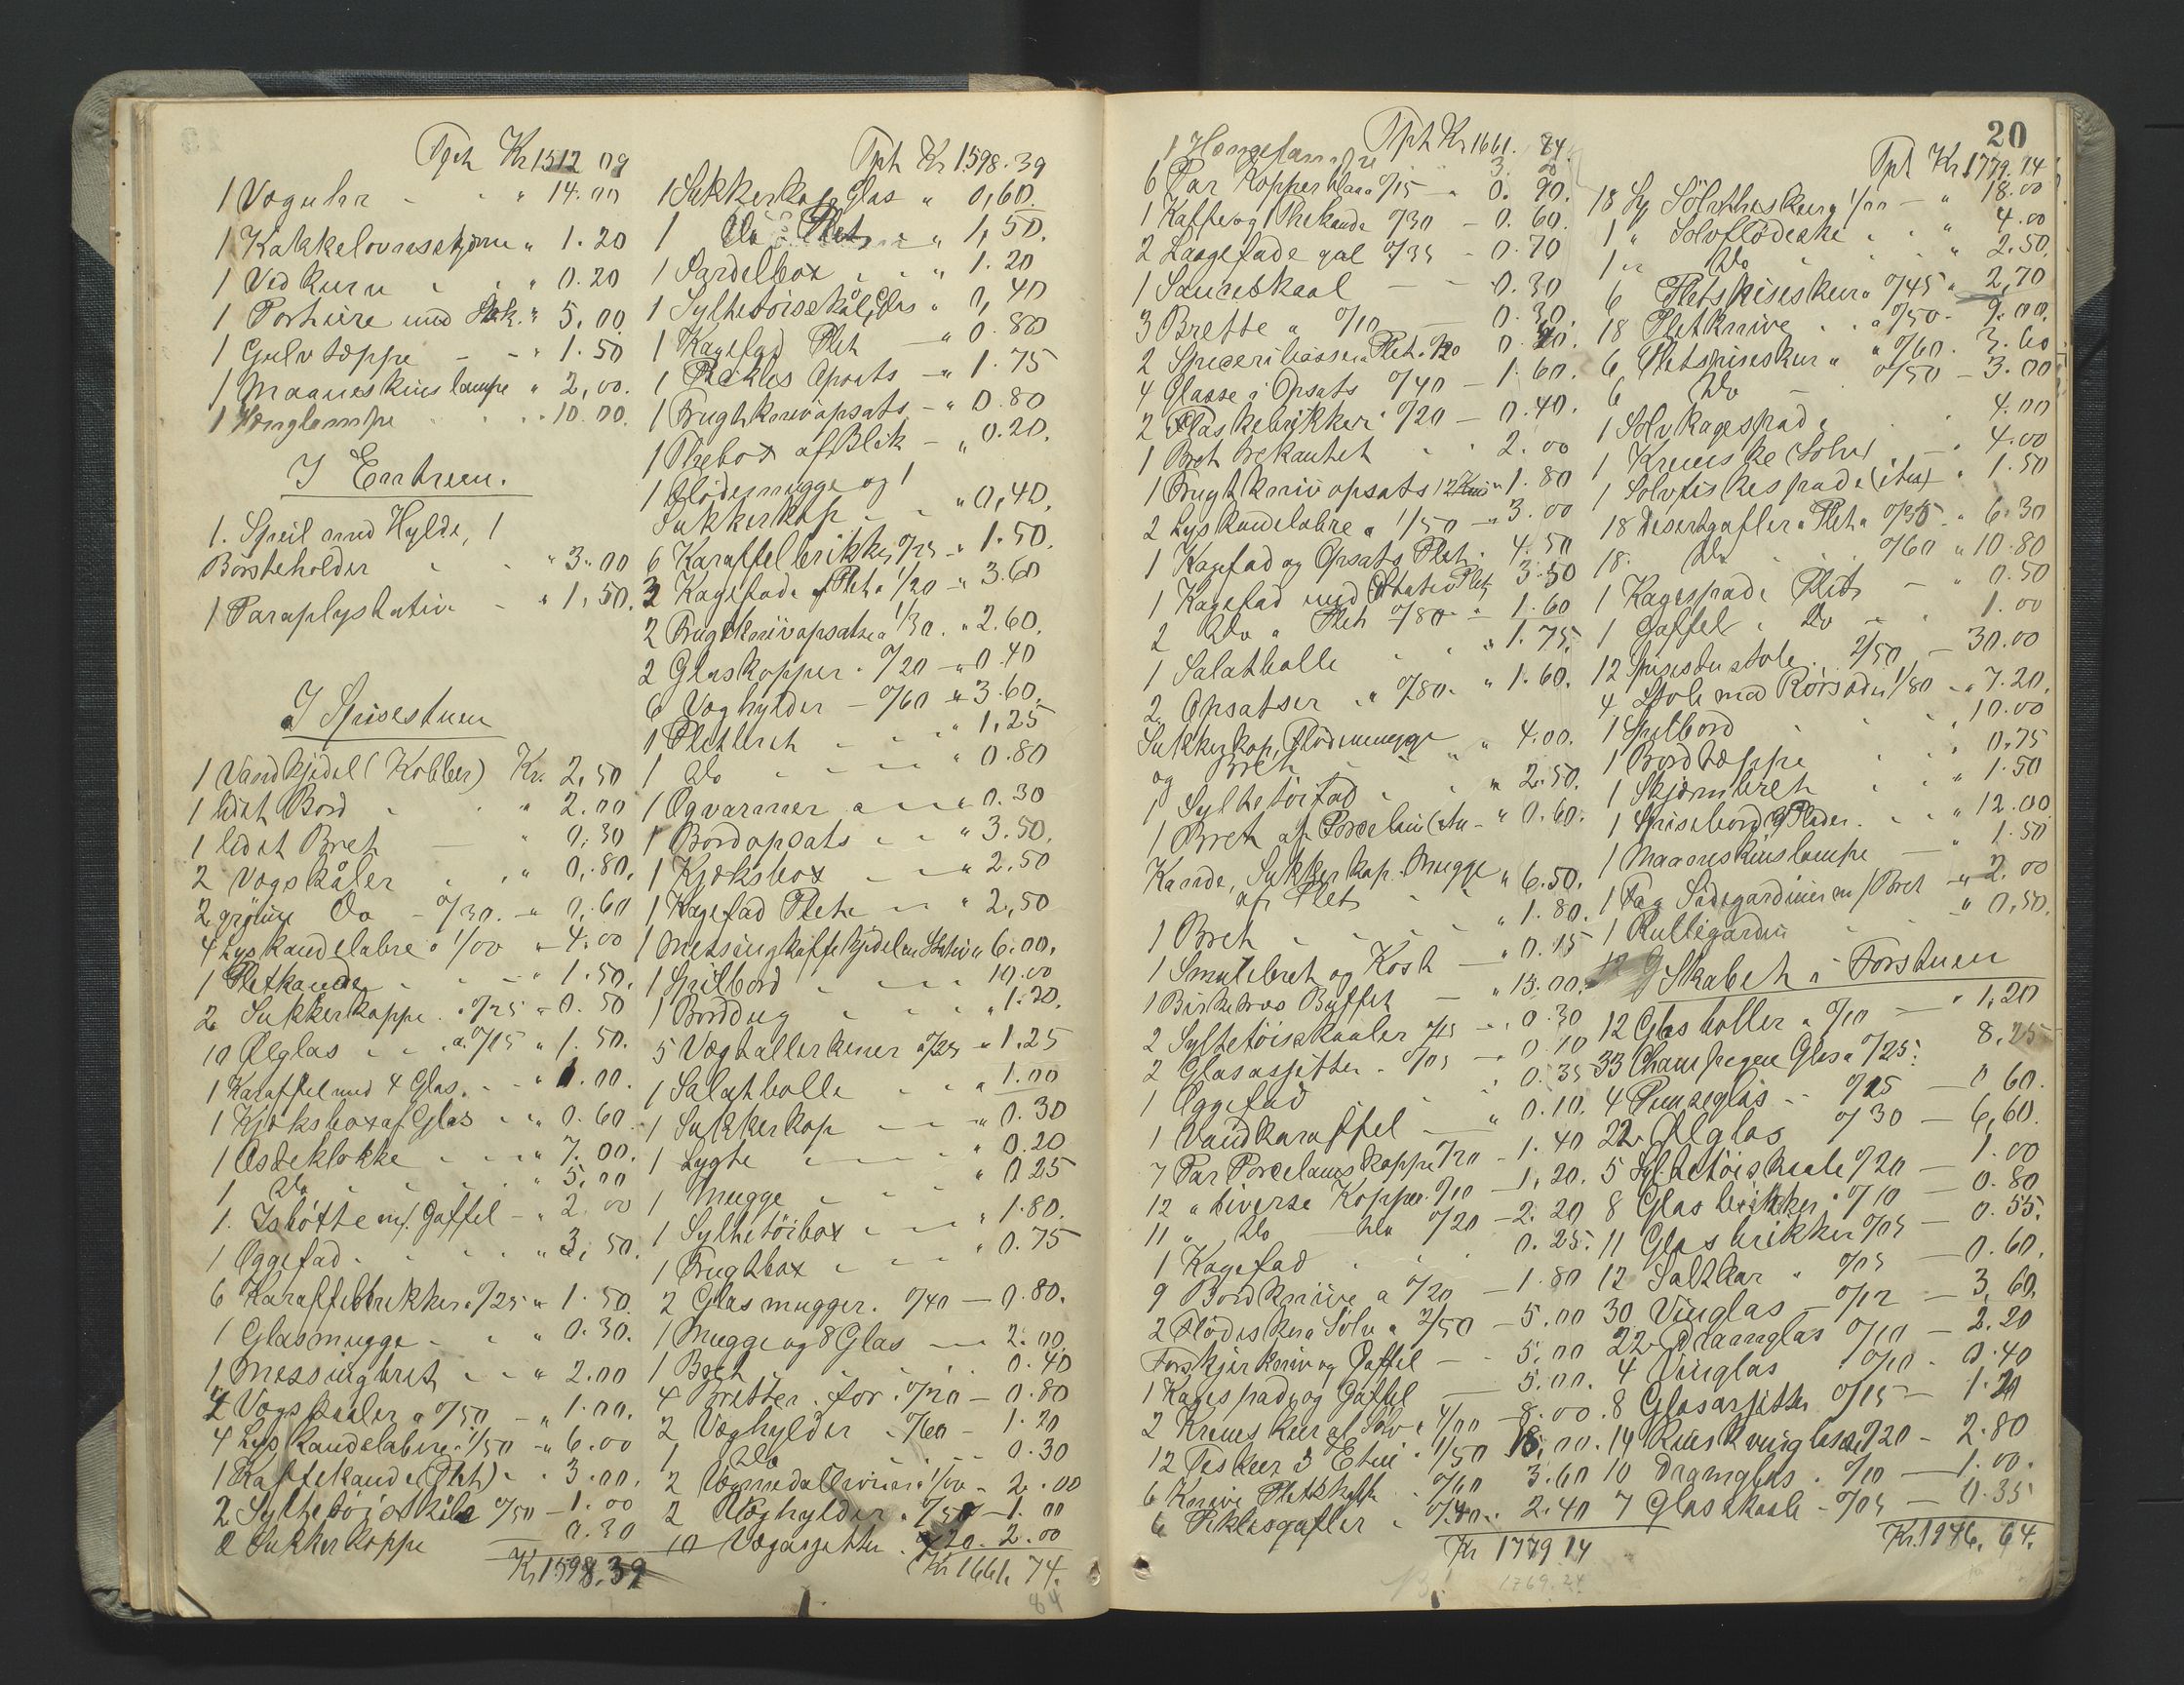 Tpt Kr 1512 09
1 Væguhr " 14.00
1 Kakkelovnsskjerm " 1.20
1 Vedkurv " 0.20
1 Portiere med Stok. " 5,00
1 Gulvtæppe - " 1.50
1 Maaneskinslampe " 2,00.
1 Hænglampe 10.00.
I Entreen.
1. Speil med Hylde, 1
Börsteholder " 3.00
1 Paraplystativ " 1,50.
I Spisestuen
1 Vandkjedel (Kobber) Kr. 2,50
1 lidet Bord " 2.00
1 lidet Bret 0.30
2 Vegskåler " 0,80,
2 grönne Do - 0/30. " 0,60
4 Lyskandelabre a 1/00 " 4.00
1 Pletkande " 1.50.
2 Sukkerkopper a 0/25 " 0.50
10 Ölglas a 0/15 " 1.50.
1 Karaffel med 4 Glas. " 1.00.
1 Kjæksbox af Glas " 0.60
1 Osteklokke " 7.00.
1 Do " 5,00
1. Isbötte m/ Gaffel - " 2.00
1 Æggefad " 3,50.
6 Karaffelbrikker a 0/25 " 1.50
1 Glasmugge " 0.30.
1 Messingbret " 2.00
2 Vægskaaler a 0/50 " 1.00.
4 Lyskandelabre a 1/50 " 6.00
1 Kaffekande (Plet) " 3.00.
2 Syltetöiskåle 0/50 - 1.00
2 Sukkerkopper 0.30
Kr 1598.39
Tpt Kr 1598.39
1 Sukkerkop Glas " 0,60.
1 Do Plet " 1,50.
1 Sardelbox " 1.20
1 Syltetöiskål, Glas " 0,40
1 Kagefad Plet " 0.80
1 Pickles Opsats " 1.75
1 Frugtknivopsats - " 0.80
1 Thebox af Blik - " 0.20.
1 Flödemugge og 1
Sukkerkop " 0,40.
6 Karaffelbrikker 0/25 " 1.50.
3 Kagefade af Plet a 1/20 " 3.60
2 Frugtknivopsatse a 1/30. " 2.60.
2 Glaskopper a 0/20 " 0.40
6 Væghylder - 0/60 " 3.60.
1 Pletbret " 1,25
1 Do " 0.80
1 Ægvarmer " 0.30
1 Bordopsats " 3.50.
1 Kjæksbox " 2.50
1 Kagefad Plet " 2,50
1 Messingkaffekjedel m Stativ " 6.00.
1 Spilbord 10.00
1 Borddug " 1.20.
5 Vægtallerkener a 0/25 " 1.25
1 Salatbolle " 1.00
1 Sukkerkop " 0.30
1 Lygte " 0.20
1 Mugge " 0.25
1 Syltetöibox " 1.80.
1 Frugtbox " 0.75
2 Glasmugger. 0/40 - 0.80.
1 Mugge og 8 Glas - 2.00
1 Bret 0.40
4 Bretter. for a 0/20 - 0.80
2 Væghylder a 0/60 - 1.20
1 Do 0.30
2 Vægmedalloner a 1/00 - 2.00
2 Væghylder a 0/50 - 1.00
10 Vægasjetter a 0/20. 2.00
Kr 1661. 74.
84
20
Tpt Kr 1661. 84.
1 Hængelampe 3. 00
6 Par Kopper blaa a 0/15 " 0.90.
1 Kaffe og 1 Thekande 0/30 - 0.60.
2 Langefade gal 0/35 - 0.70
1 Sauceskaal - 0.30
3 Brette a 0/10 - 0.30.
2 Speceribösser Plet a 0/20 0.40.
4 Glasse i Opsats 0/40 - 1.60.
2 Flaskebrikker a 0/20 - 0.40.
1 Bret trekantet 2.00
1 Frugtknivopsats 12 Kniv " 1.80
2 Lyskandelabre a 1/50 - " 3.00
1 Kagefad og Opsats Plet " 4.50
1 Kagefad med Stativ Plet 3.50
2 Do a Plet 0/80 - 1.60
1 Salatbolle " 1.75.
2 Opsatser a 0/80. " 1.60.
Sukkerkop, Flödemugge
og Bret " 4.00.
1 Syltetöifad " 2.50.
1 Bret af Porcelain (itu - " 0.60.
Kande, Sukkerkop. Mugge
af Plet " 6.50.
1 Bret " 1.80.
1 Smulebret og Kost " 0.15
1 Birketræs Buffet " 13.00.
2 Syltetöiskaaler a 0/15 - 0.30
2 Glasasjetter - 0/05 - 0.10
1 Æggefad 0.35
1 Vandkaraffel " 0.10.
7 Par Porcelains Kopper 0/20 - 1.40
12 " diverse Kopper 0/10 - 1,20.
11 " Do blå 0/20 - 2.20
1 Kagefad 0.25.
9 Bordknive a 0/20 - 1.80
2 Flödeskeer Sölv a 2/50 - 5.00
Forskjærkniv og Gaffel - 5,00
1 Kagespade og Gaffel - 5.00.
2 Kremskeer af Sölv a 4/00 - 8.00.
12 Teskeer i Etui a 1/50 18,00.
6 Knive Pletskaft a 0/60 3.60
6 Piklesgafler 0/40.. 2.40
Kr 1779 14
1769.24
Tpt Kr 1779.14
18 Sp Sölvtheskeer a 1/00 - " 18.00
1 " Sölvflödeske " 4.00
1 " Do " 2.50
6 Pletspiseskeer a 0/45 " 2,70
18 Pletknive a 0/50 - 9.00.
6 Pletspiseskeer " a 0/60. 3.60
6 Do - 0/50 - 3.00
1 Sölvkagespade 4.00
1 Kremske (Sölv) 4.00
1 Sölvfiskespade (itu) " 1.50
18 Desertgafler a Plet a 0/35 " 6.30
18. Do 0/60 " 10.80
1 Kagespade Plet - " 0.50
1 Gaffel Do - 1.00
12 Spisestuestole. 2/50 - 30.00
4 Stole med Rörsæder 1/80 - " 7.20.
1 Spilbord 10.00
1 Bordtæppe " 0.75
1 Skjænkebret " 1.50
1 Spisebord 9 Plader. " 12.00
1 Maaneskinslampe - " 1.50
1 Fag Sidegardiner m/ Bret " 2.00
1 Rullegardin " 0,50.
I Skabet i Forstuen
12 Glasboller a 0/10 - " 1,20
33 Champagne Glas a 0/25. 8,25
4 Punseglas - 0/15 - 0 60.
22 Ølglas 0/30 - 6,60.
5 Syltetöiskaale 0/20 - 1.00
8 Glasbrikker a 0/10 - 0.80
11 Glasbrikker 0/05 - 0.55.
12 Saltkar a 0/05 - 0.60.
30 Vinglas - 0/12 - 3,60.
22 Dramglas 0/10 - 2.20
4 Vinglas a 0/10 - 0.40
8 Glasasjetter 0/15 - 1.20
14 Rinskvinglas a 0/20 - 2.80
10 Dramglas. 0/10 - 1.00.
7 Glasskaale - 0/05 - 0.35
Kr. 1976. 64.